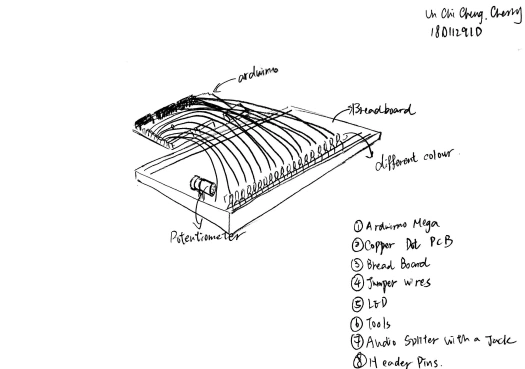 Un Chi Cheng, Cherry
18011291D
arduino
Breadboard
different colour.
Potentiometer
① Arduino Mega
② Copper Dot PCB
③ Bread Board
④ Jumper wires
⑤ LED
⑥ Tools
⑦ Audio Spliter with a Jack
⑧ Header Pins.